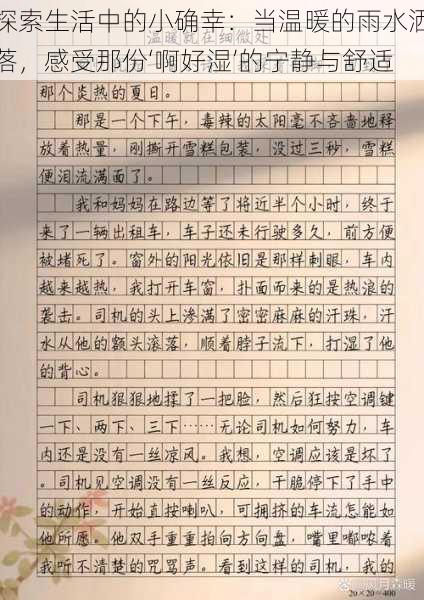 探索生活中的小确幸：当温暖的雨水洒
温暖就在细微处
落，感受那份‘啊好湿’的宁静与舒适
那个炎热的夏日。
那是一个下午，毒辣的太阳毫不吝啬地释
放着热量，刚撕开雪糕包装，没过三秒，雪糕
便泪流满面了。
我和妈妈在路边等了将近半个小时，终于
来了一辆出租车，车子还未行驶多久，前方便
被堵死了。窗外的阳光依旧是那样刺眼，车内
越来越热，我打开车窗，扑面而来的是热浪的
袭击。司机的头上渗满了密密麻麻的汗珠，汗
水从他的额头滚落，顺着脖子流下，打湿了他
的背心。
司机狠狠地揉了一把脸，然后狂按空调键
一下、两下、三下……无论司机如何努力，车
内还是没有一丝凉风。我想，空调应该是坏了
。司机见空调没有一丝反应，干脆停下了手中
的动作，开始直按喇叭，可拥挤的车流怎能如
他所愿。他双手重重拍向方向盘，嘴里嘟哝着
我听不清楚的咒骂声。看到这样的司机，我的
20×20=400